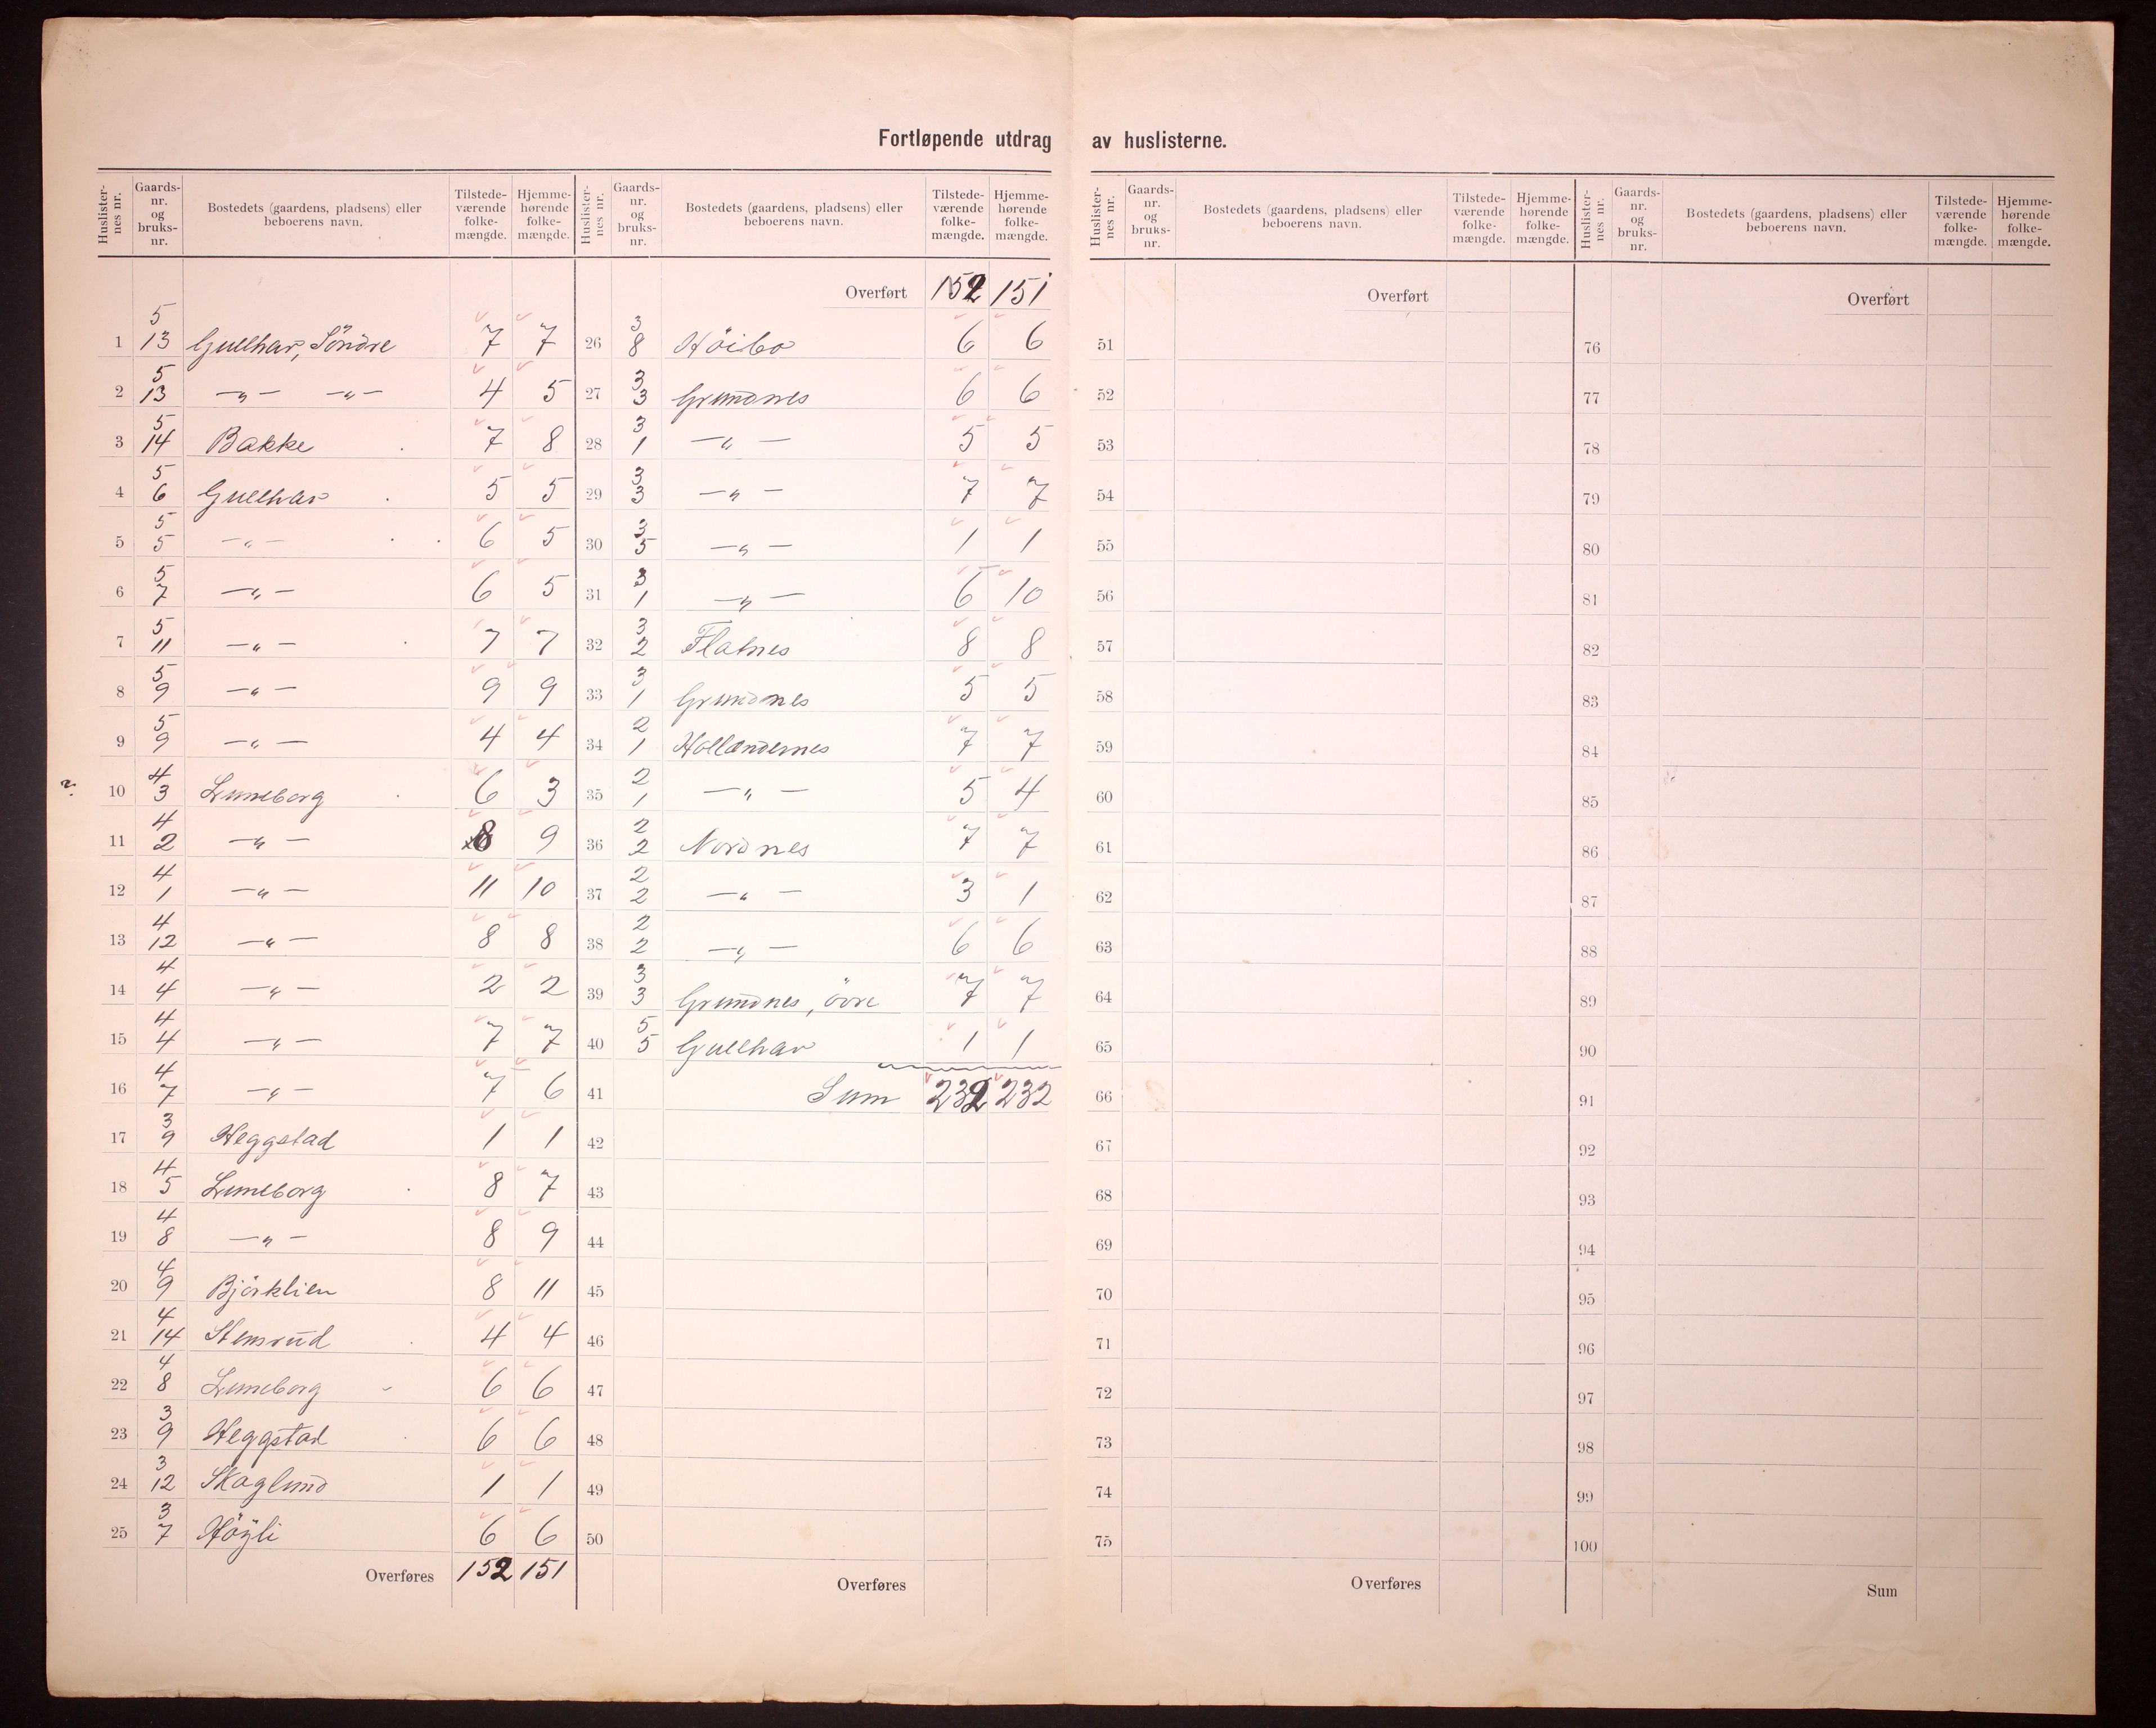 Fortløpende utdrag av huslisterne.
Huslisternes nr. Gaards-nr. og bruks-nr. Bostedets (gaardens, pladsens) eller beboerens navn. Tilstedeværende folkemængde. Hjemmehørende folkemængde.
1 5 13 Gullhav, Söndre 7 7
2 5 13 —„— —„— 4 5
3 5 14 Bakke 7 8
4 5 6 Gullhav 5 5
5 5 5 —„— 6 5
6 5 7 —„— 6 5
7 5 11 —„— 7 7
8 5 9 —„— 9 9
9 5 9 —„— 4 4
10 4 3 Luneborg 6 3
11 4 2 —„— 8 9
12 4 1 —„— 11 10
13 4 12 —„— 8 8
14 4 4 —„— 2 2
15 4 4 —„— 7 7
16 4 7 —„— 7 6
17 3 9 Heggstad 1 1
18 4 5 Luneborg 8 7
19 4 8 —„— 8 9
20 4 9 Björklien 8 11
21 4 14 Stensrud 4 4
22 4 8 Luneborg 6 6
23 3 9 Heggstad 6 6
24 3 12 Skoglund 1 1
25 3 7 Höyli 6 6
Overføres 152 151
Huslisternes nr. Gaards-nr. og bruks-nr. Bostedets (gaardens, pladsens) eller beboerens navn. Tilstedeværende folkemængde. Hjemmehørende folkemængde.
Overført 152 151
26 3 8 Höibo 6 6
27 3 3 Grundnes 6 6
28 3 1 —„— 5 5
29 3 3 —„— 7 7
30 3 5 —„— 1 1
31 3 1 —„— 6 10
32 3 2 Flatnes 8 8
33 3 1 Grundnes 5 5
34 2 1 Hollændernes 7 7
35 2 1 —„— 5 4
36 2 2 Nordnes 7 7
37 2 2 —„— 3 1
38 2 2 —„— 6 6
39 3 3 Grundnes, övre 7 7
40 5 5 Gullhav 1 1
41 Sum 232 232
42
43
44
45
46
47
48
49
50
Overføres
Huslisternes nr. Gaards-nr. og bruks-nr. Bostedets (gaardens, pladsens) eller beboerens navn. Tilstedeværende folkemængde. Hjemmehørende folkemængde.
Overført
51
52
53
54
55
56
57
58
59
60
61
62
63
64
65
66
67
68
69
70
71
72
73
74
75
Overføres
Huslisternes nr. Gaards-nr. og bruks-nr. Bostedets (gaardens, pladsens) eller beboerens navn. Tilstedeværende folkemængde. Hjemmehørende folkemængde.
Overført
76
77
78
79
80
81
82
83
84
85
86
87
88
89
90
91
92
93
94
95
96
97
98
99
100
Sum